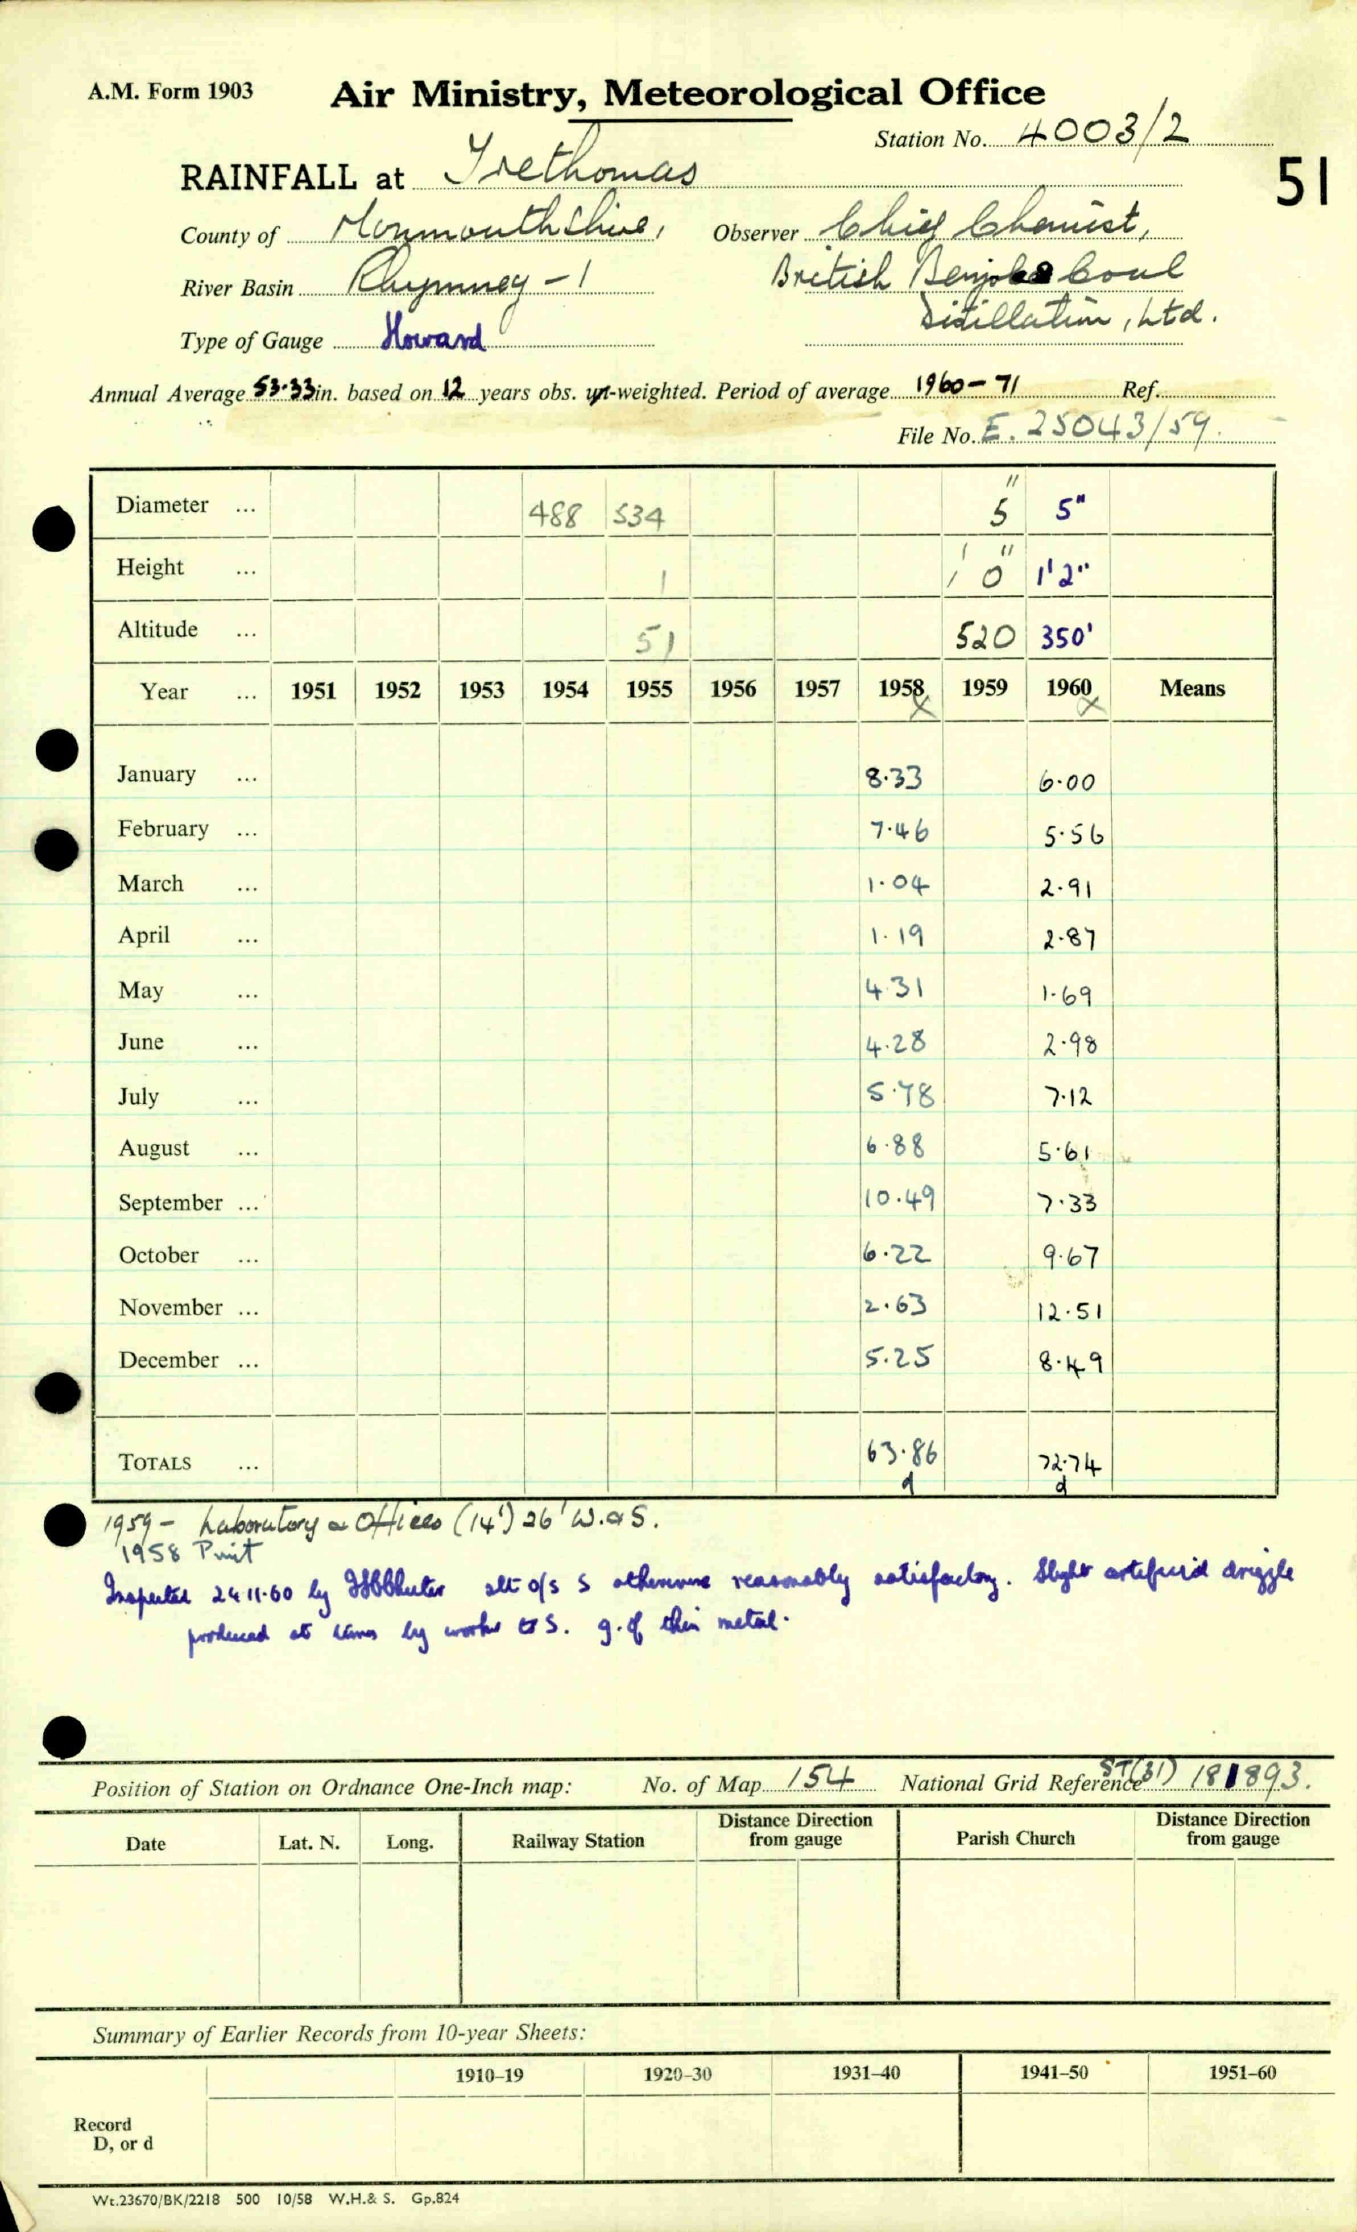 A.M. Form 1903 Air Ministry, Meteorological Office
Station No. 4003/2
RAINFALL at Trethomas
51
County of Monmouthshire, Observer Chief Chemist,
River Basin Rhymney - 1 British Coal
Distillation, Ltd.
Type of Gauge Howard
Annual Average 53.33 in. based on 12 years obs. -weighted. Period of average 1960-71 Ref.
File No. E. 25043/59.
Diameter ... 488 534 5" 5"
Height ... 1 1' 0" 1'2"
Altitude ... 51 520 350'
Year ... 1951 1952 1953 1954 1955 1956 1957 1958 x 1959 1960 x Means
January ... 8.33 6.00
February ... 7.46 5.56
March ... 1.04 2.91
April ... 1.19 2.87
May ... 4.31 1.69
June ... 4.28 2.98
July ... 5.78 7.12
August ... 6.88 5.61
September ... 10.49 7.33
October ... 6.22 9.67
November ... 2.63 12.51
December ... 5.25 8.49
TOTALS ... 63.86 72.74
d d
1959 - Laboratory & Offices (14') 26' W. & S.
1958 Print
Inspected 24.11.60 by alt o/s S otherwise reasonably satisfactory. Slight artificial drizzle
produced at times by works to S. g. of thin metal.
Position of Station on Ordnance One-Inch map: No. of Map 154 National Grid Reference ST(31) 181893.
Date Lat. N. Long. Railway Station Distance Direction from gauge Parish Church Distance Direction from gauge
Summary of Earlier Records from 10-year Sheets:
1910–19 1920–30 1931–40 1941–50 1951–60
Record
D, or d
Wt.23670/BK/2218 500 10/58 W.H.& S. Gp.824